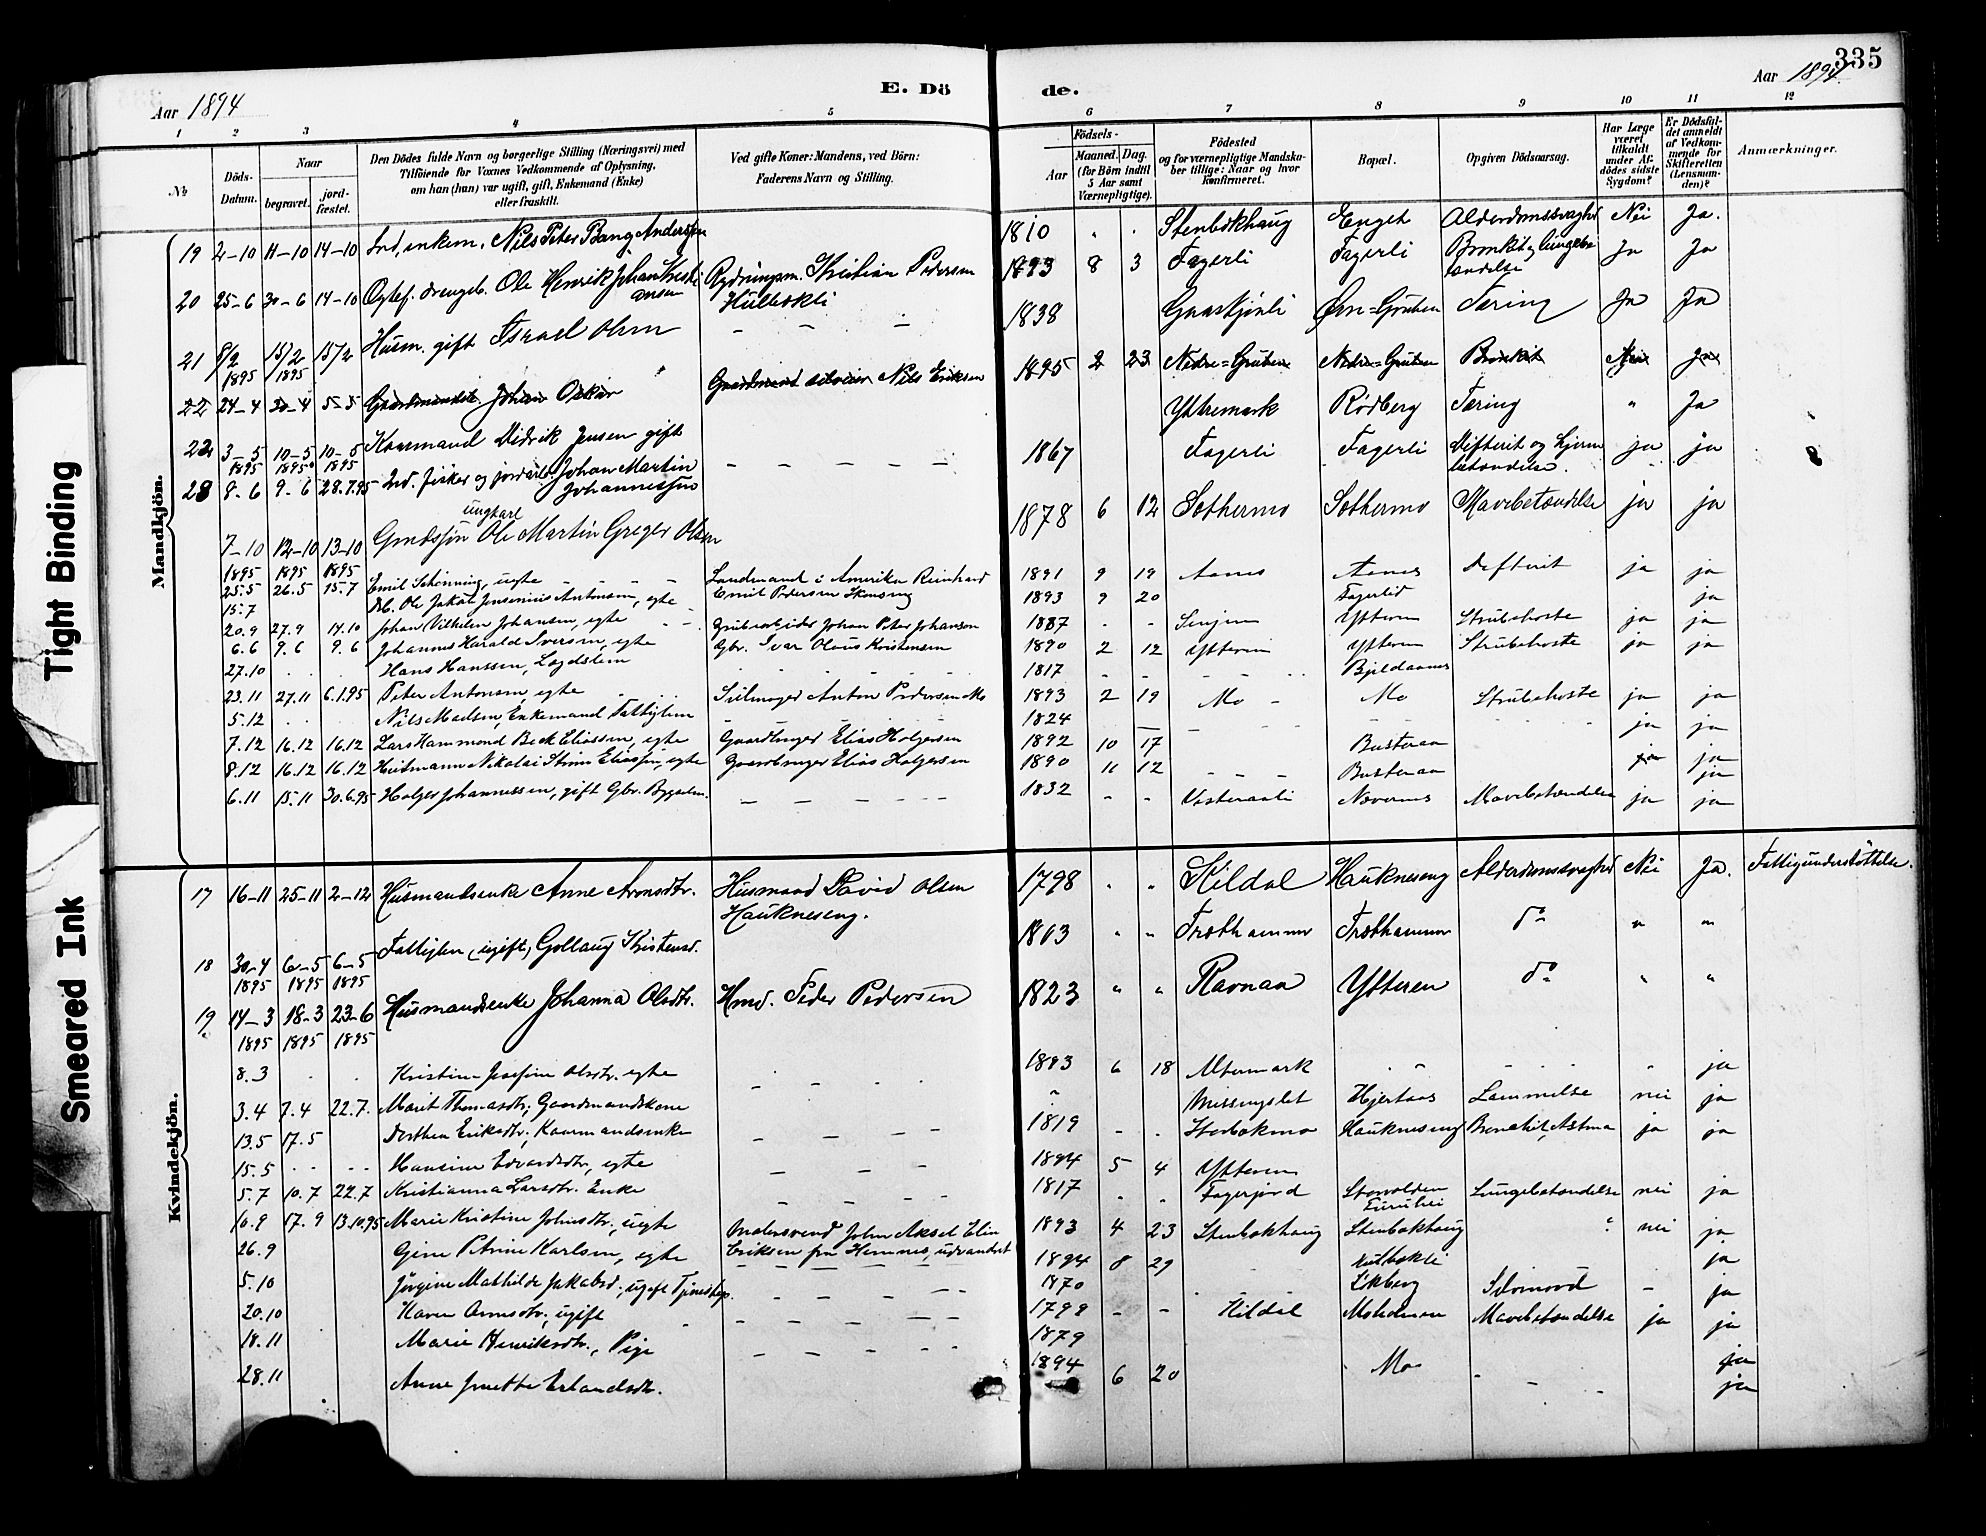 335
Aar 1894
E. Dö
de.
Aar 1894
1 2 3 4 5 6 7 8 9 10 11 12
No
Döds-Datum.
Naar
begravet.
jord-fæstet.
Den Dödes fulde Navn og borgerlige Stilling (Næringsvei) med
Tilföiende for Voxnes Vedkommende af Oplysning,
om han (hun) var ugift, gift, Enkemand (Enke)
eller fraskilt.
Ved gifte Koner: Mandens, ved Börn:
Faderens Navn og Stilling.
Födsels-
Aar
Maaned. Dag.
(for Börn indtil
5 Aar samt
Værnepligtige).
Födested
og for værnepligtige Mandska-
ber tillige: Naar og hvor
konfirmeret.
Bopæl.
Opgiven Dödsaarsag.
Har Læge
været
tilkaldt
under Af-
dödes sidste
Sygdom?
Er Dödsfal-
det anmeldt
af Vedkom-
mende for
Skifteretten
(Lensman-
den)?
Anmærkninger.
Tight Binding
Smeared Ink
Mandkjön.
19 2-10 11-10 14-10 Ind, enkem. Nils Peter Bang Anderssen 1810 " . Stenbokhaug Enget Alderdomssvaghed Nei Ja.
20 25-6 30-6 14-10 Ægtef. drengeb. Ole Henrik Johan Kristiansen Rydningsm. Kristian Pedersen 1893 8 3 Fagerli Fagerli Bronkit og Lungebetændelse Ja Ja
21 8/2 1895 15/2 1895 15/2 Husm. gift Israel Olsen — — — 1838 Øvre-Gruben Tæring Ja Ja
22 24-4 30-4 5-5 Johan Oskar Nils Eriksen 1895 2 23 Nedre-Gruben Nedre-Gruben Bronkit Ja
22 3-5 1895 10-5 1895 10-5 1895 Kaarmand Didrik Jensen gift Yttremark Rödberg Tæring " Ja
23 8-6 9-6 28.7.95 Ind. fisker og jordarb. Johan Martin Johannessen — — — — — 1867 Fagerli Fagerli Difterit og Hjernebetændelse. ja ja
ungkarl
7-10 1895 12-10 1895 13-10 1895 Ole Martin Greger Olsen 1878 6 12 Sæthermo Sæthermo Mavebetændelse ja ja
25.5 26.5 15.7 Emil Schönning, uegte Landmand i Amerika Reinhard 1891 9 19 Aanes Aanes Difterit ja ja
15.7 Ole Jakob Jensenius Antonsen, egte Emil Pedersen 1893 9 20 Fagerlid ja
20.9 27.9 14.10 Johan Vilhelm Johansen, egte Grubearbeider Johan Peter Johansen 1887 - - Senjen Ytteren Strubehoste ja ja
6.6 9.6 9.6 Johannes Harald Iversen, egte Gbr. Ivar Olaus Kristensen 1890 2 12 Ytteren Ytteren Strubehoste ja ja
27.10 . . Hans Hanssen, Lægdslem 1817 Bjeldaanes
23.11 27.11 6.1.95 Peter Antonsen, egte Anton Pedersen Mo 1893 2 19 Mo - Mo Strubehoste ja ja
5.12 . . Nils Madsen, Enkemand Fattiglem 1824 ja ja
7.12 16.12 16.12 Lars Hammond Beck Eliassen, egte Gaardbruger Elias Holgersen 1892 10 17 Busteraa ja
8.12 16.12 16.12 Heitmann Nikolai Strøm Eliassen, egte Gaardbruger Elias Holgersen 1890 11 12 Busteraa ja
6.11 15.11 30.6.95 Holger Johannessen, gift Gbr. 1832 - - Vesteraali Nævernes Mavebetændelse ja ja
Kvindekjön.
17 16-11 25-11 2-12 Husmandsenke Anne Arnesdtr. Husmand David Olsen 1798 " " Kildal Haukneseng Alderdomssvaghed Nei Ja. Fattigunderstöttelse.
Haukneseng.
18 30-4 1895 6-5 1895 6-5 1895 Fattiglem (ugift) Gollaug Kristensd. 1803 " " Træthammer Træthammer do " "
19 14-3 1895 18-3 1895 23-6 1895 Husmandsenke Johanna Olsdtr. Hmd. Peder Pedersen 1823 " " Ravnaa Ytteren do " "
8.3 . . Kristine Josefine Olsdtr. egte 1893 6 18 Altermark ja
3.4 7.4 22.7. Marit Thomasdtr, Gaardmandskone Messingslet Hjertaas Lammelse nei ja
13.5 17.5 Dorthea Eriksdtr, Kaarmandsenke 1819 - - Stenbokmo Haukneseng Bronchit, Astma ja ja
15.5 .. .. Hansine Edvardsdtr, egte 1894 5 4 Ytteren
5.7 10.7 22.7 Kristianna Larsdtr. Enke 1817 " " Fagerjord Storvolden Lungebetændelse nei ja
10.9 17.9 13.10.95 Marie Kristine Johnsdtr, uegte Malersvend John Aksel Elin 1893 4 23 Stenbokhaug Stenbokhaug nei ja
26.9 Gine Petrine Karlsen, egte Eriksen fra Hemnes, udvandret 1894 8 29 ja
5.10 Jörgine Mathilde Jakobsd., ugift Tjenestepi. 1870 Ekberg Selvmord - ja
20.10 Karen Arnesdtr, ugift 1798 - - Kildal Moholmen Mavebetændelse ja ja
18.11 Marie Henriksdtr., Pige 1879
28.11 Anne Jenette Erlandsdtr. 1894 6 20 Mo ja
ja